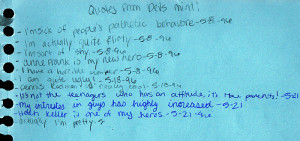 Quotes from
- I'm sick of people's pathetic behavior -5-8-96
- I'm actually quite flirty -5-8-96
- I'm sort of shy -5-8-96
- Anne Frank is my new hero -5-8-96
- I have a horrible -5-8-96
- I am quite ugly! -5-18-96
- is really cool! -5-18-96
- It's not the teenagers who has an attitude, it's the parents! -5-21
- My interest in guys has highly increased -5-21
- Helen Keller is one of my heros -5-21-96
- Actually I'm pretty